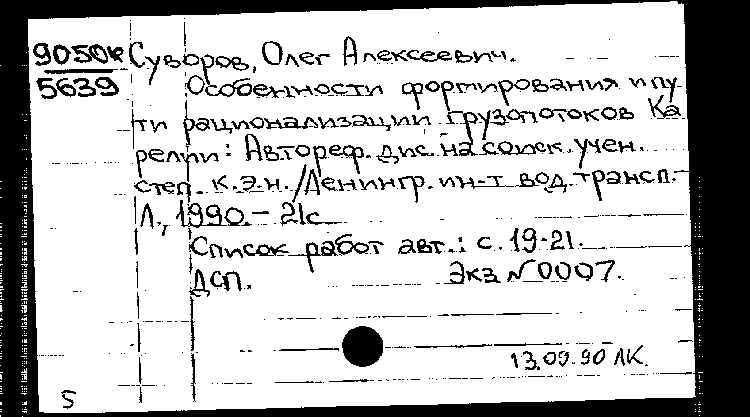 9050к Суворов, Олег Алексеевич.
5639 Особенности формирования и пу
ти рационализации грузопотоков Ка
релии: Автореф. дис. на соиск. учен.
степ. к.э.н./Ленингр. ин-т вод. трансп.-
Л., 1990.- 21с
Список работ авт.: с. 19-21.
ДСП. Экз №0007.
13.09.90 ЛК.
5